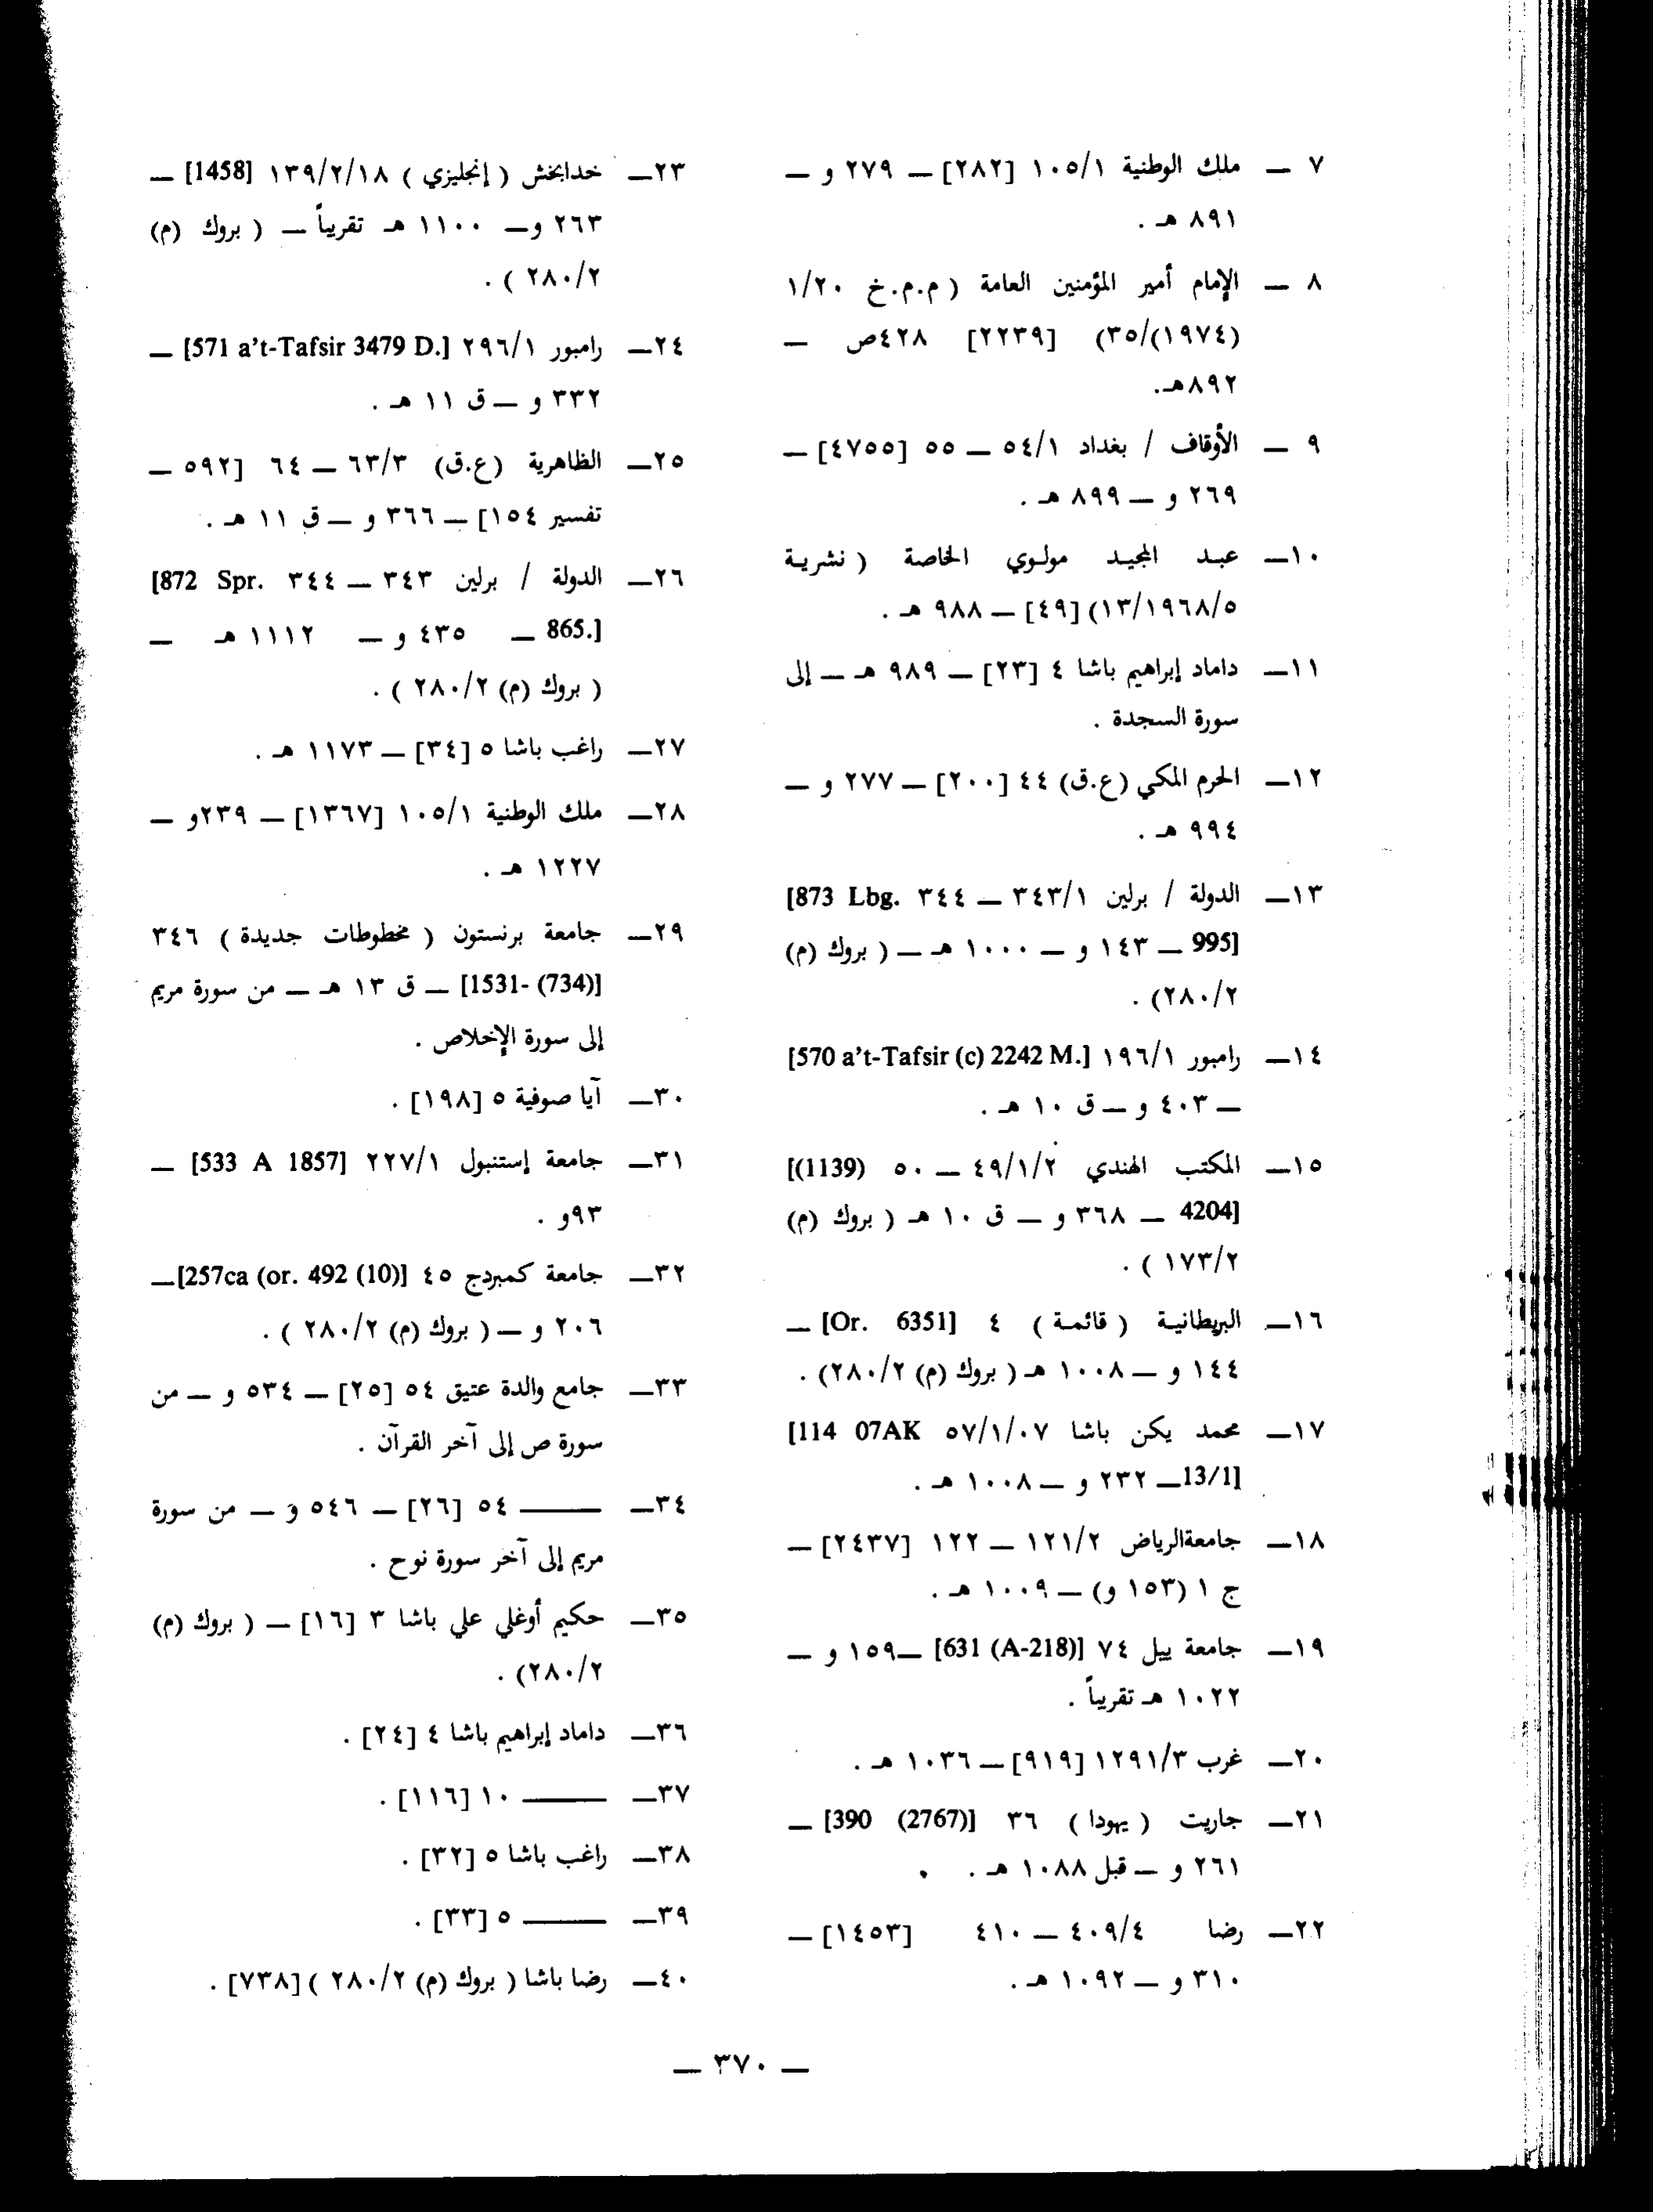 ٧ — ملك الوطنية ١٠٥/١ [٢٨٢] — ٢٧٩ و —
٨٩١ هـ .
٨ — الإمام أمير المؤمنين العامة ( م.م.خ ١/٢٠
(١٩٧٤)/٣٥) [٢٢٣٩] ٤٢٨ص —
٨٩٢هـ.
٩ — الأوقاف / بغداد ٥٤/١ — ٥٥ [٤٧٥٥] —
٢٦٩ و — ٨٩٩ هـ .
١٠— عبد المجيد مولوي الخاصة ( نشرية
١٣/١٩٦٨/٥) [٤٩] — ٩٨٨ هـ .
١١— داماد إبراهيم باشا ٤ [٢٣] — ٩٨٩ هـ — إلى
سورة السجدة .
١٢— الحرم المكي (ع.ق) ٤٤ [٢٠٠] — ٢٧٧ و —
٩٩٤ هـ .
١٣— الدولة / برلين ٣٤٣/١ — ٣٤٤ [873 Lbg.
995] — ١٤٣ و — ١٠٠٠ هـ — ( بروك (م)
٢٨٠/٢) .
١٤— رامبور ١٩٦/١ [570 a't-Tafsir (c) 2242 M.]
— ٤٠٣ و — ق ١٠ هـ .
١٥— المكتب الهندي ٤٩/١/٢ — ٥٠ [(1139)
4204] — ٣٦٨ و — ق ١٠ هـ ( بروك (م)
١٧٣/٢ ) .
١٦— البريطانية ( قائمة ) ٤ [Or. 6351] —
١٤٤ و — ١٠٠٨ هـ ( بروك (م) ٢٨٠/٢) .
١٧— محمد يكن باشا ٥٧/١/٠٧ [114 07AK
13/1] — ٢٣٢ و — ١٠٠٨ هـ .
١٨— جامعةالرياض ١٢١/٢ — ١٢٢ [٢٤٣٧] —
ج ١ (١٥٣ و) — ١٠٠٩ هـ .
١٩— جامعة ييل ٧٤ [631 (A-218)] —١٥٩ و —
١٠٢٢ هـ تقريباً .
٢٠— غرب ١٢٩١/٣ [٩١٩] — ١٠٣٦ هـ .
٢١— جاريت ( يهودا ) ٣٦ [390 (2767)] —
٢٦١ و — قبل ١٠٨٨ هـ .
٢٢— رضا ٤٠٩/٤ — ٤١٠ [١٤٥٣] —
٣١٠ و — ١٠٩٢ هـ .
٢٣— خدابخش ( إنجليزي ) ١٣٩/٢/١٨ [1458] —
٢٦٣ و— ١١٠٠ هـ تقريباً — ( بروك (م)
٢٨٠/٢ ) .
٢٤— رامبور ٢٩٦/١ [571 a't-Tafsir 3479 D.] —
٣٣٢ و — ق ١١ هـ .
٢٥— الظاهرية (ع.ق) ٦٣/٣ — ٦٤ [٥٩٢ —
تفسير ١٥٤] — ٣٦٦ و — ق ١١ هـ .
٢٦— الدولة / برلين ٣٤٣ — ٣٤٤ [872 Spr.
865.] — ٤٣٥ و — ١١١٢ هـ —
( بروك (م) ٢٨٠/٢ ) .
٢٧— راغب باشا ٥ [٣٤] — ١١٧٣ هـ .
٢٨— ملك الوطنية ١٠٥/١ [١٣٦٧] — ٢٣٩و —
١٢٢٧ هـ .
٢٩— جامعة برنستون ( مخطوطات جديدة ) ٣٤٦
[1531- (734)] — ق ١٣ هـ — من سورة مريم
إلى سورة الإخلاص .
٣٠— آيا صوفية ٥ [١٩٨] .
٣١— جامعة إستنبول ٢٢٧/١ [533 A 1857] —
٩٣و .
٣٢— جامعة كمبردج ٤٥ [257ca (or. 492 (10)]—
٢٠٦ و — ( بروك (م) ٢٨٠/٢ ) .
٣٣— جامع والدة عتيق ٥٤ [٢٥] — ٥٣٤ و — من
سورة ص إلى آخر القرآن .
٣٤— ——— ٥٤ [٢٦] — ٥٤٦ و — من سورة
مريم إلى آخر سورة نوح .
٣٥— حكيم أوغلي علي باشا ٣ [١٦] — ( بروك (م)
٢٨٠/٢) .
٣٦— داماد إبراهيم باشا ٤ [٢٤] .
٣٧— ——— ١٠ [١١٦] .
٣٨— راغب باشا ٥ [٣٢] .
٣٩— ——— ٥ [٣٣] .
٤٠— رضا باشا ( بروك (م) ٢٨٠/٢ ) [٧٣٨] .
— ٣٧٠ —